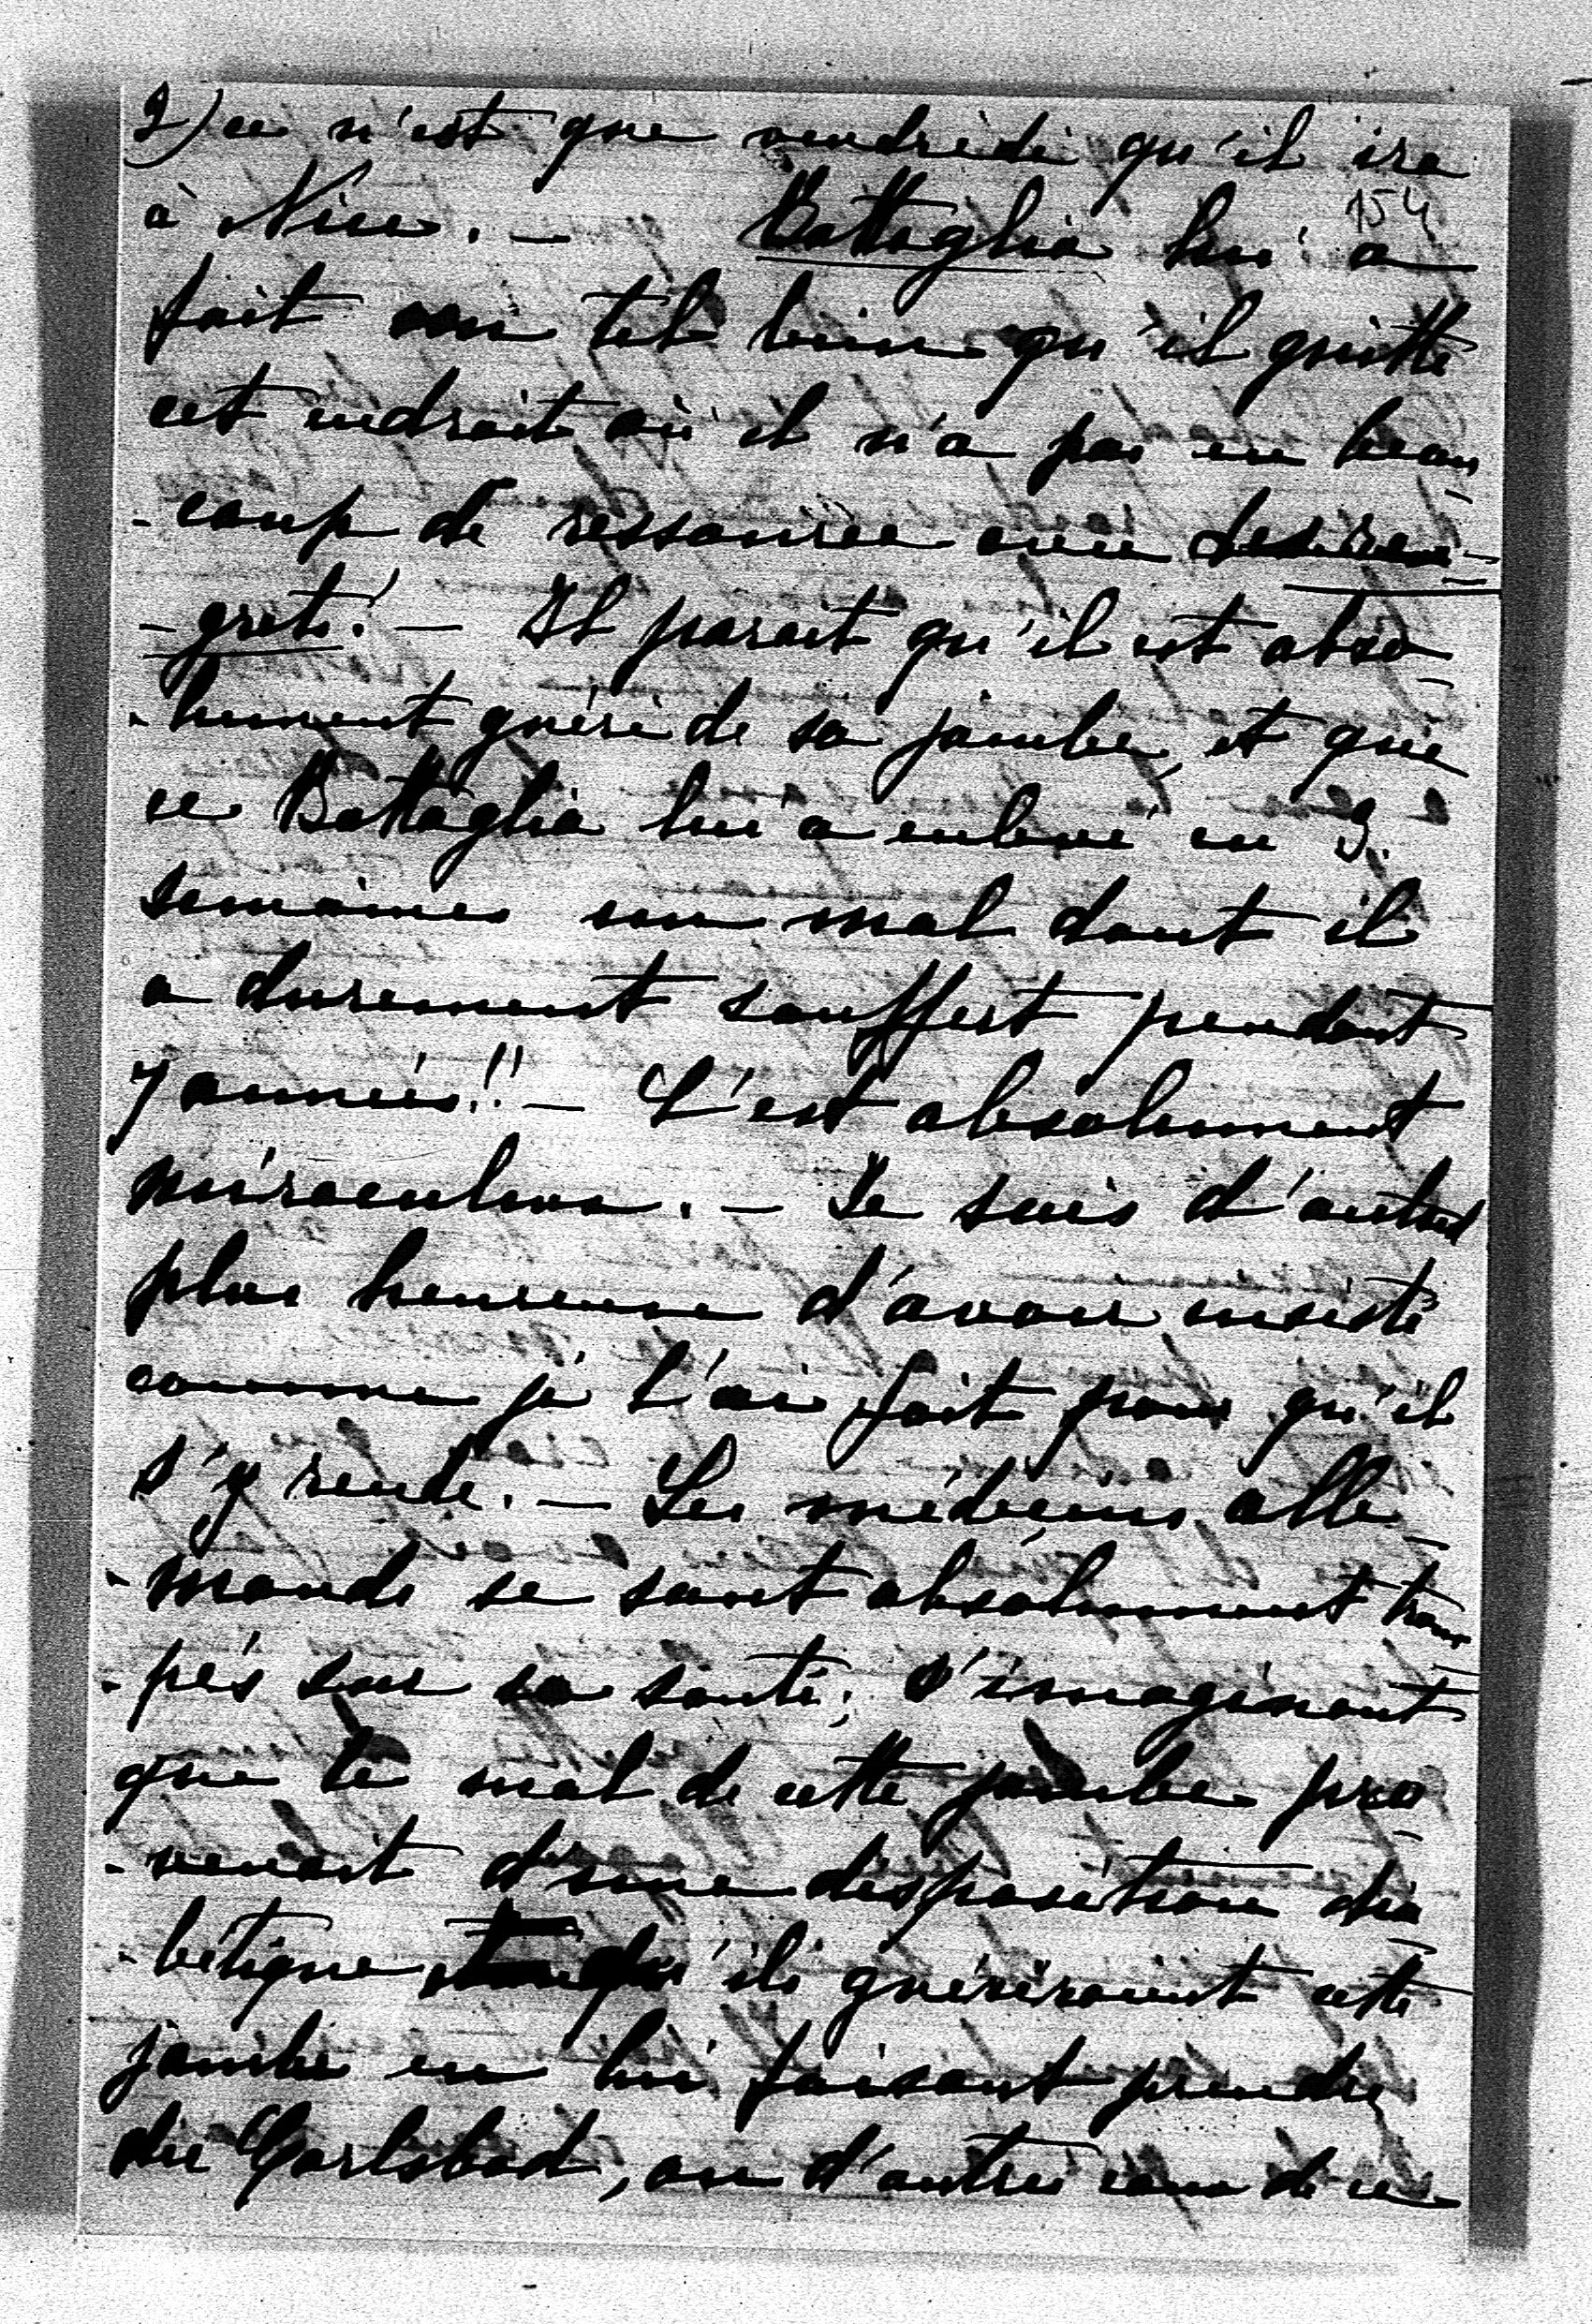 2) ce n'est que vendredi qu'il ira
154
à Nice. — Battaglia lui a
fait un tel bien qu'il quitte
cet endroit où il n'a pas eu beau
-coup de ressource avec
-gret! — Il parait qu'il est abso
-lument guéri de sa jambe, et que
ce Battaglia lui a enlevé en 3.
semaines un mal dont il
a durement souffert pendant
7 années!! — C'est absolument
miraculeux. — Je suis d'autant
plus heureuse d'avoir insisté
comme je l'ai fait pour qu'il
s'y rende. — Les médecins alle
-mands se sont absolument trom
-pés sur sa santé; s'imaginant
que le mal de cette jambe pro
-venait d'une disposition dia
-bétique qu'ils guériraient cette
jambe en lui faisant prendre
du Carlsbad, ou d'autres eaux de ce